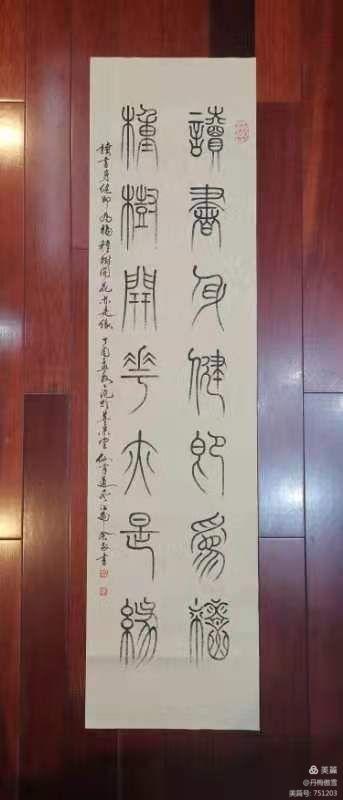 讀書身健即為福
種樹開華亦是緣
讀書身健即為福種樹開花亦是緣 丁酉 書
美篇
@丹梅傲雪
美篇号: 751203